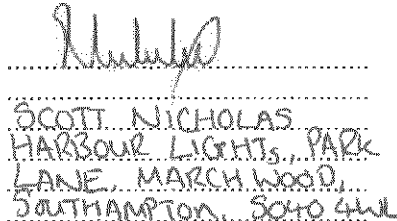 SCOTT NICHOLAS
HARBOUR LIGHTS, PARK
LANE, MARCHWOOD,
SOUTHAMPTON, SO40 4WL